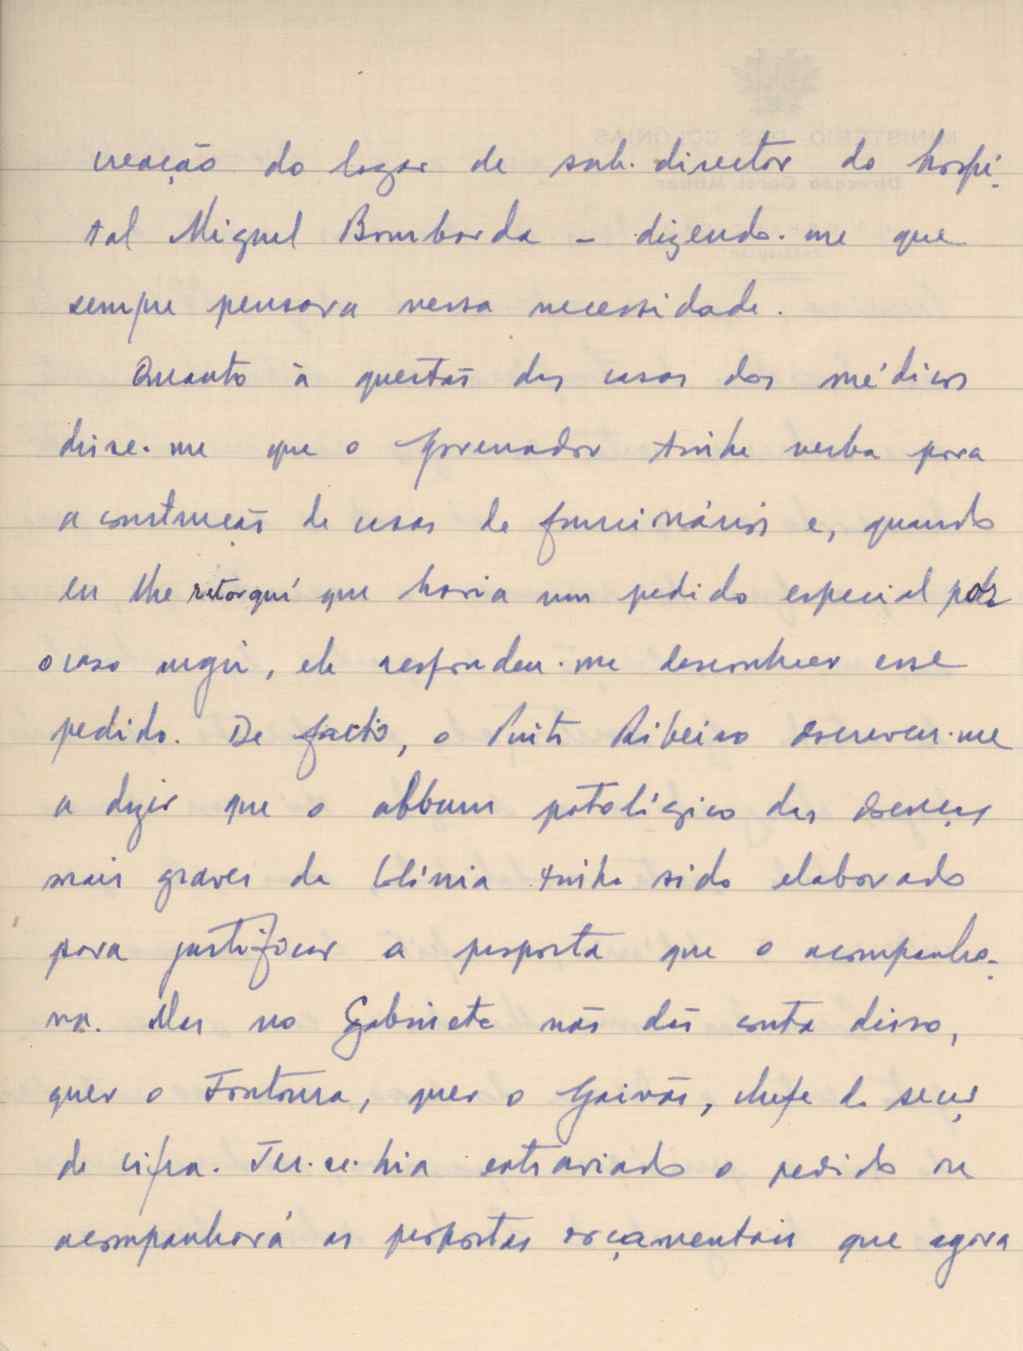 creação do logar de sub-director do hospi-
tal Miguel Bombarda - dizendo-me que
sempre pensara nessa necessidade.
Quanto à questão das casas dos médicos
disse-me que o Governador tinha verba para
a construção de casas de funcionários e, quando
eu lhe retorqui que havia um pedido especial por
o caso urgir, ele respondeu-me desconhecer esse
pedido. De facto, o Pinto Ribeiro escreveu-me
a dizer que o album patológico das doenças
mais graves da Colónia tinha sido elaborado
para justificar a proposta que o acompanha-
va. Mas no Gabinete não dão conta disso,
quer o Fontoura, quer o Gaivão, chefe da secç
de cifra. Ter-se-hia extraviado o pedido ou
acompanhará as propostas orçamentais que agora